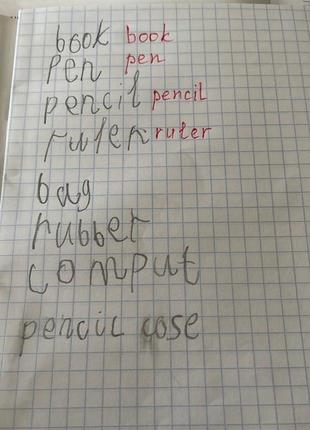 book book
pen pen
pencil pencil
ruler ruler
bag
rubber
comput
pencil cose